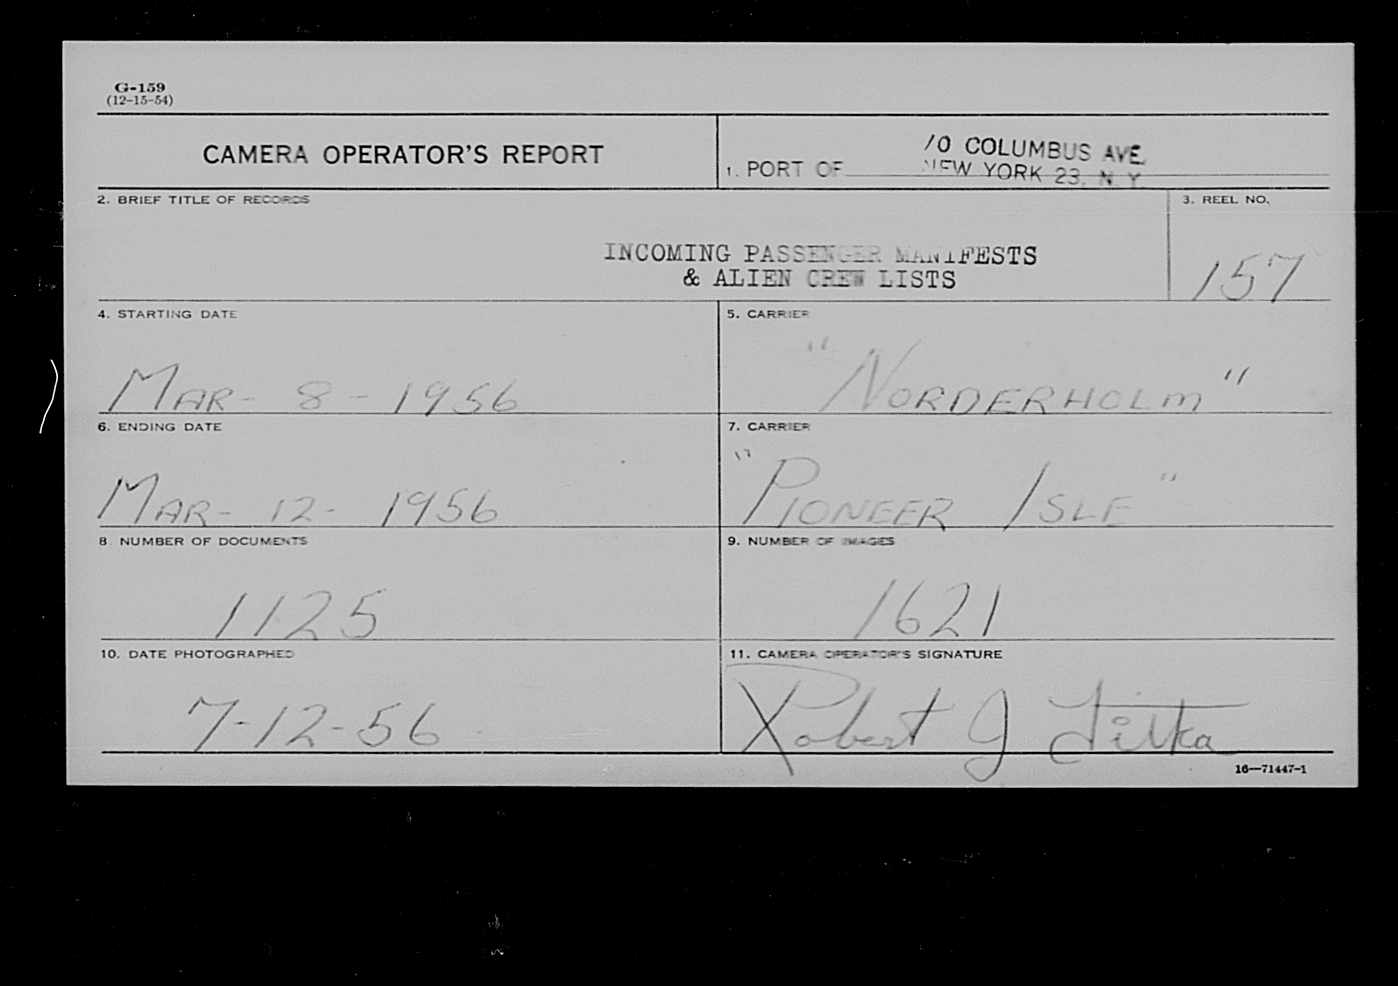 G-159
(12-15-54)
CAMERA OPERATOR'S REPORT
1. PORT OF
10 COLUMBUS AVE.
NEW YORK 23, N. Y.
2. BRIEF TITLE OF RECORDS
3. REEL NO.
INCOMING PASSENGER MANIFESTS
& ALIEN CREW LISTS
157
4. STARTING DATE
5. CARRIER
MAR- 8 - 1956
"NORDERHOLM"
6. ENDING DATE
7. CARRIER
MAR- 12- 1956
"PIONEER ISLE"
8 NUMBER OF DOCUMENTS
9. NUMBER OF IMAGES
1125
1621
10. DATE PHOTOGRAPHED
11. CAMERA OPERATOR'S SIGNATURE
7-12-56
Robert J
16—71447-1